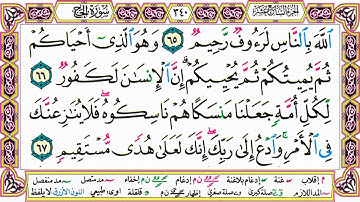 الجزء السابع عشر ٣٤٠ سورة الحج
ٱللَّهَ بِٱلنَّاسِ لَرَءُوفٌ رَّحِيمٌ ٦٥ وَهُوَ ٱلَّذِىٓ أَحْيَاكُمْ
ثُمَّ يُمِيتُكُمْ ثُمَّ يُحْيِيكُمْ إِنَّ ٱلْإِنسَـٰنَ لَكَفُورٌ ٦٦
لِّكُلِّ أُمَّةٍ جَعَلْنَا مَنسَكًا هُمْ نَاسِكُوهُ فَلَا يُنَـٰزِعُنَّكَ
فِى ٱلْأَمْرِ وَٱدْعُ إِلَىٰ رَبِّكَ إِنَّكَ لَعَلَىٰ هُدًى مُّسْتَقِيمٍ ٦٧